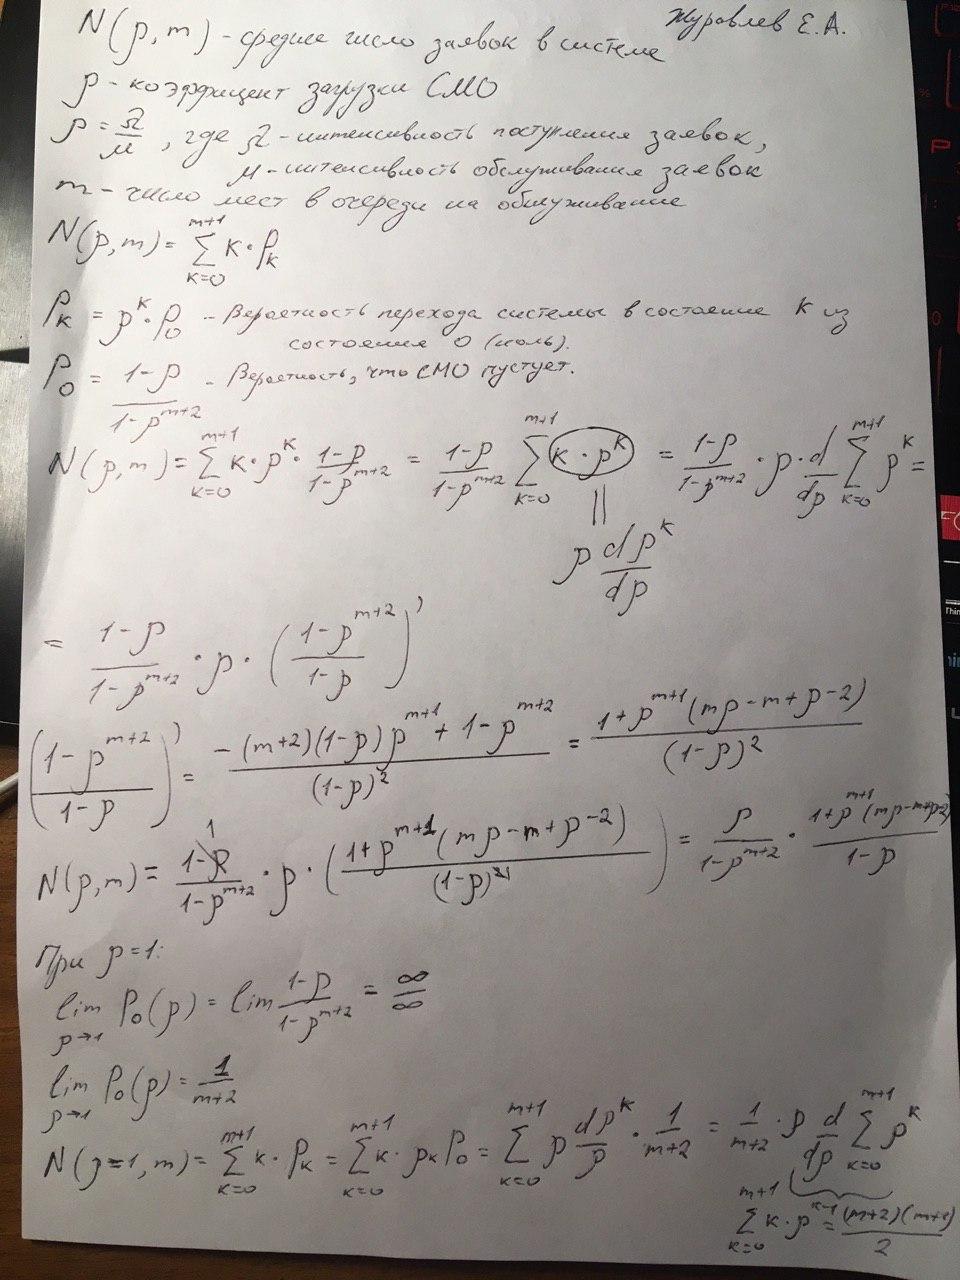 Журавлев Е.А.
N(p,m) - среднее число заявок в системе
p - коэффицент загрузки СМО
p = Ω/μ, где Ω - интенсивность поступления заявок,
μ - интенсивность обслуживания заявок
m - число мест в очереди на обслуживание
N(p,m) = ∑_{k=0}^{m+1} k·P_k
P_k = p^k·P_0 - Вероятность перехода системы в состояние k из
состояния 0 (ноль).
P_0 = (1-p)/(1-p^{m+2}) - Вероятность, что СМО пустует.
N(p,m) = ∑_{k=0}^{m+1} k·p^k·(1-p)/(1-p^{m+2}) = (1-p)/(1-p^{m+2}) ∑_{k=0}^{m+1} k·p^k = (1-p)/(1-p^{m+2})·p·d/dp ∑_{k=0}^{m+1} p^k =
||
p dp^k/dp
= (1-p)/(1-p^{m+2})·p·((1-p^{m+2})/(1-p))'
((1-p^{m+2})/(1-p))' = (-(m+2)(1-p)p^{m+1}+1-p^{m+2})/(1-p)^2 = (1+p^{m+1}(mp-m+p-2))/(1-p)^2
N(p,m) = (1-p)/(1-p^{m+2})·p·((1+p^{m+1}(mp-m+p-2))/(1-p)^2) = p/(1-p^{m+2})·(1+p^{m+1}(mp-m+p-2))/(1-p)
При p=1:
lim_{p→1} P_0(p) = lim (1-p)/(1-p^{m+2}) = ∞/∞
lim_{p→1} P_0(p) = 1/(m+2)
N(p=1,m) = ∑_{k=0}^{m+1} k·P_k = ∑_{k=0}^{m+1} k·p_k P_0 = ∑_{k=0}^{m+1} p dp^k/p·1/(m+2) = 1/(m+2)·p d/dp ∑_{k=0}^{m+1} p^k
∑_{k=0}^{m+1} k·p^{k-1} = (m+2)(m+1)/2